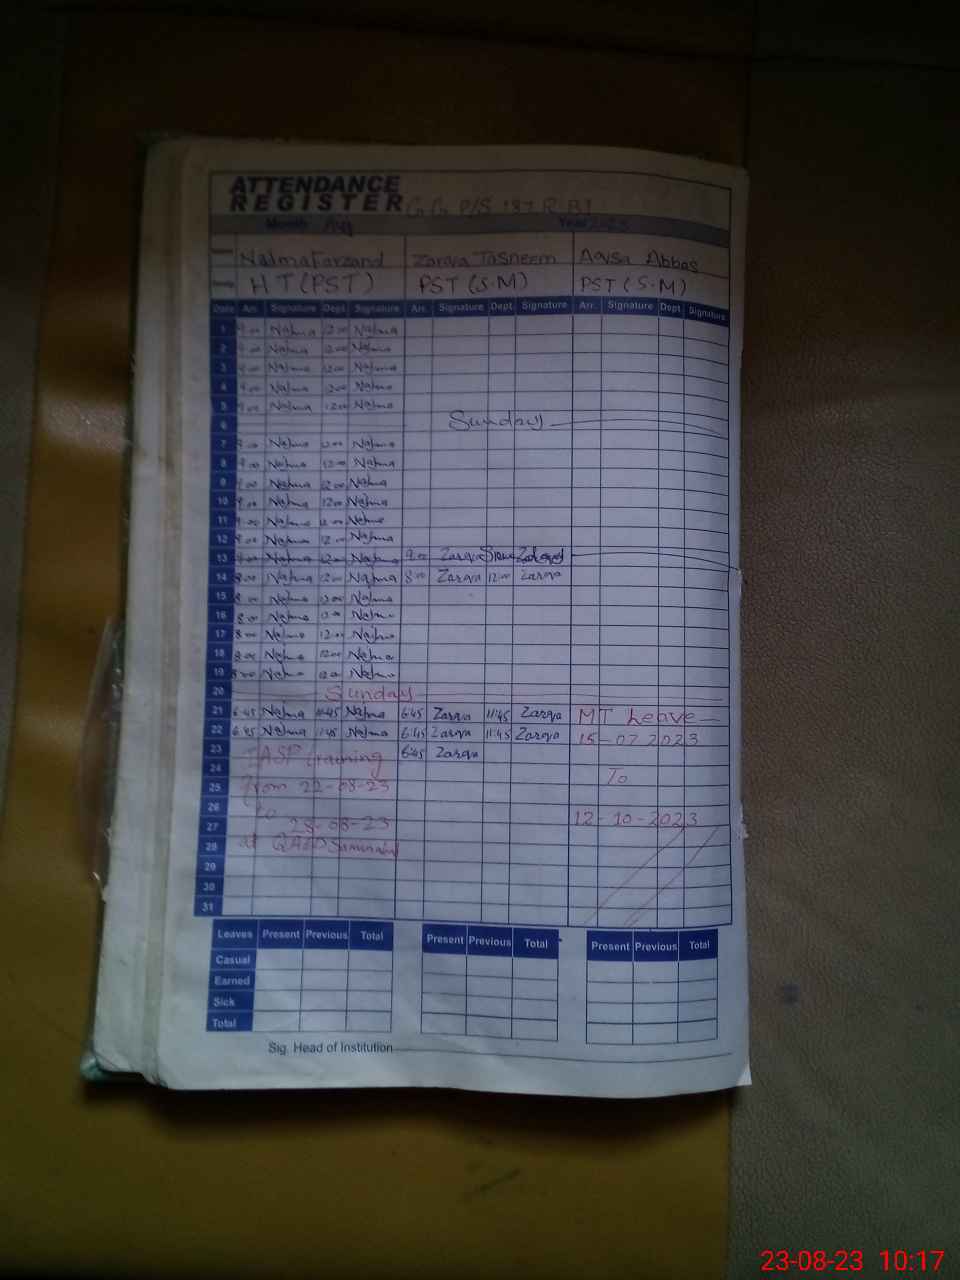 ATTENDANCE
REGISTER G.G P/S 187 R.B I
Month Aug Year 2023
Name Najma Farzand Zarqa Tasneem Aqsa Abbas
H T (PST) PST (S.M) PST (S.M)
Date Arr. Signature Dept. Signature Arr. Signature Dept. Signature Arr. Signature Dept. Signature
1 9:00 Najma 12:00 Najma
2 9:00 Najma 12:00 Najma
3 9:00 Najma 12:00 Najma
4 9:00 Najma 12:00 Najma
5 9:00 Najma 12:00 Najma
6 Sunday
7 9:00 Najma 12:00 Najma
8 9:00 Najma 12:00 Najma
9 9:00 Najma 12:00 Najma
10 9:00 Najma 12:00 Najma
11 9:00 Najma 12:00 Najma
12 8:00 Najma 12:00 Najma
13 Najma 12:00 Najma 9:00 Zarqa
14 8:00 Najma 12:00 Najma 8:00 Zarqa 12:00 Zarqa
15 8:00 Najma 12:00 Najma
16 8:00 Najma 12:00 Najma
17 8:00 Najma 12:00 Najma
18 8:00 Najma 12:00 Najma
19 8:00 Najma 12:00 Najma
20 Sunday
21 6:45 Najma 11:45 Najma 6:45 Zarqa 11:45 Zarqa MT Leave
22 6:45 Najma 11:45 Najma 6:45 Zarqa 11:45 Zarqa 15-07-2023
23 training 6:45 Zarqa
24 To
25 from 22-08-23
26 to 12-10-2023
27 28-08-23
28 at QAED Samundri
29
30
31
Leaves Present Previous Total Present Previous Total Present Previous Total
Casual
Earned
Sick
Total
Sig. Head of Institution
23-08-23 10:17